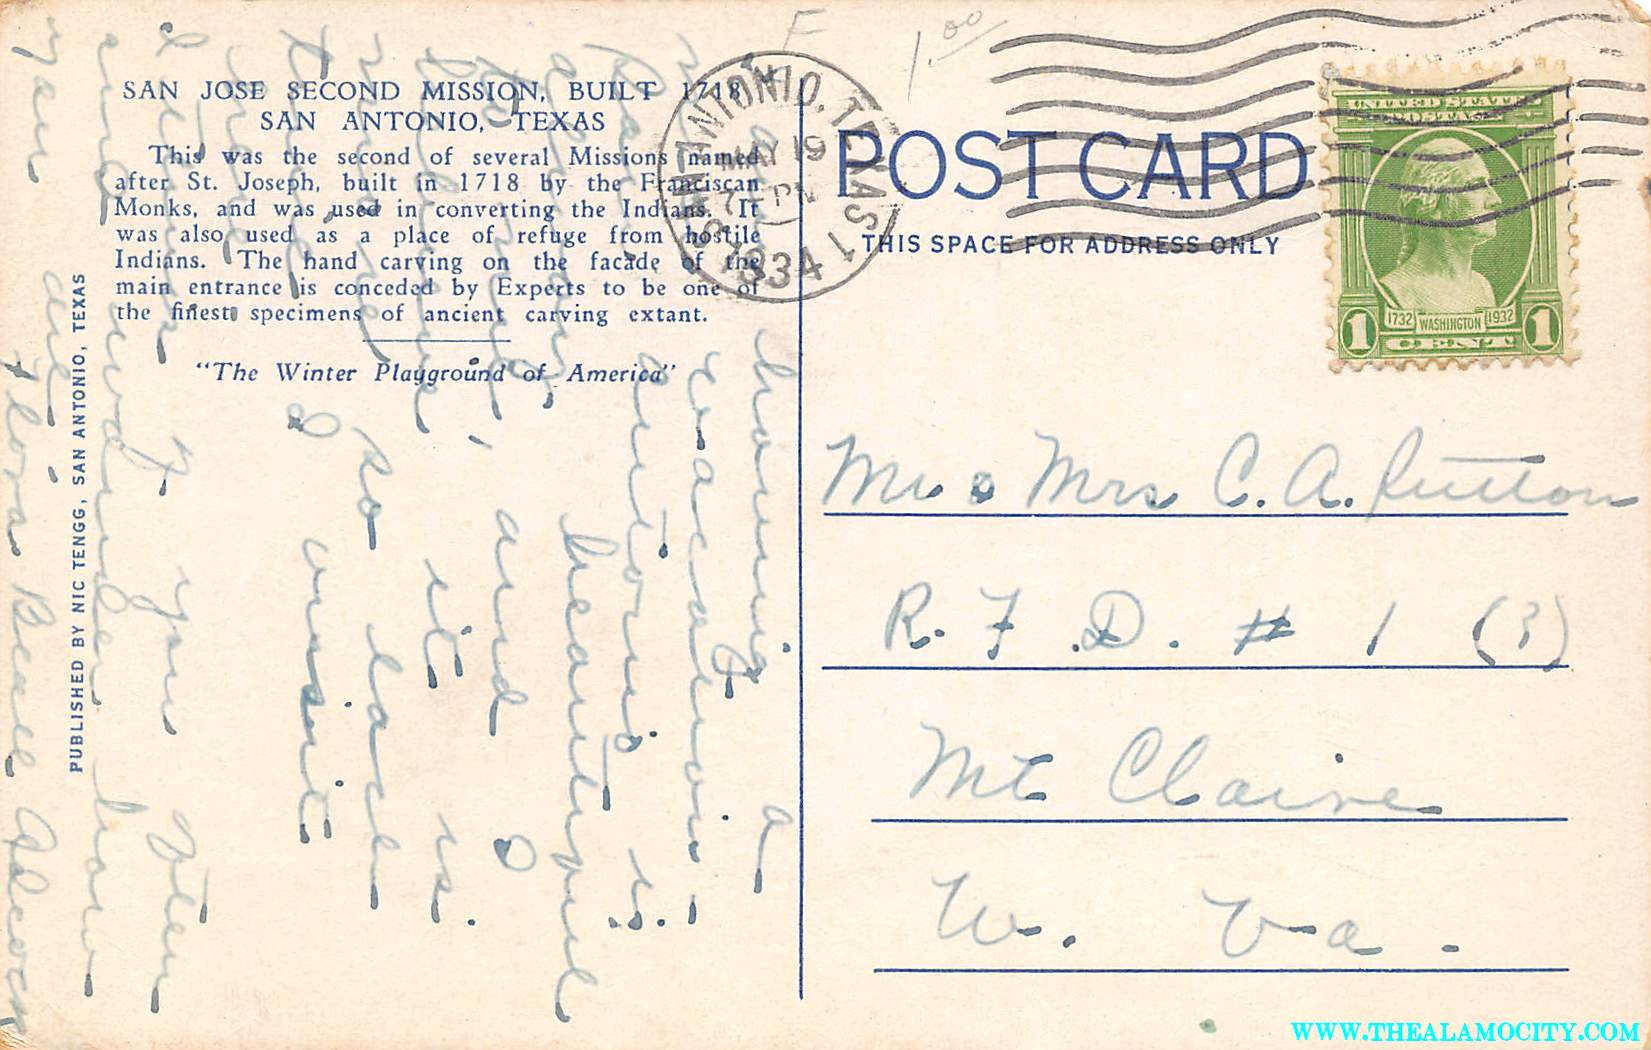 SAN JOSE SECOND MISSION, BUILT 1718
SAN ANTONIO, TEXAS
This was the second of several Missions named
after St. Joseph, built in 1718 by the Franciscan
Monks, and was used in converting the Indians. It
was also used as a place of refuge from hostile
Indians. The hand carving on the facade of the
main entrance is conceded by Experts to be one of
the finest specimens of ancient carving extant.
"The Winter Playground of America"
PUBLISHED BY NIC TENGG, SAN ANTONIO, TEXAS
having a
vacation -
antonio is
beautiful
and I
it is
so
I visit
if you
and wonder how
you are
F
1.00
SAN ANTONIO, TEXAS 1
MAY 19
7 - PM
1934
POST CARD
THIS SPACE FOR ADDRESS ONLY
UNITED STATES
POSTAGE
1732 WASHINGTON 1932
1 CENT 1
Mr & Mrs C. A. Sutton
R. F. D. # 1 (3)
Mt Claire
W. Va.
WWW.THEALAMOCITY.COM